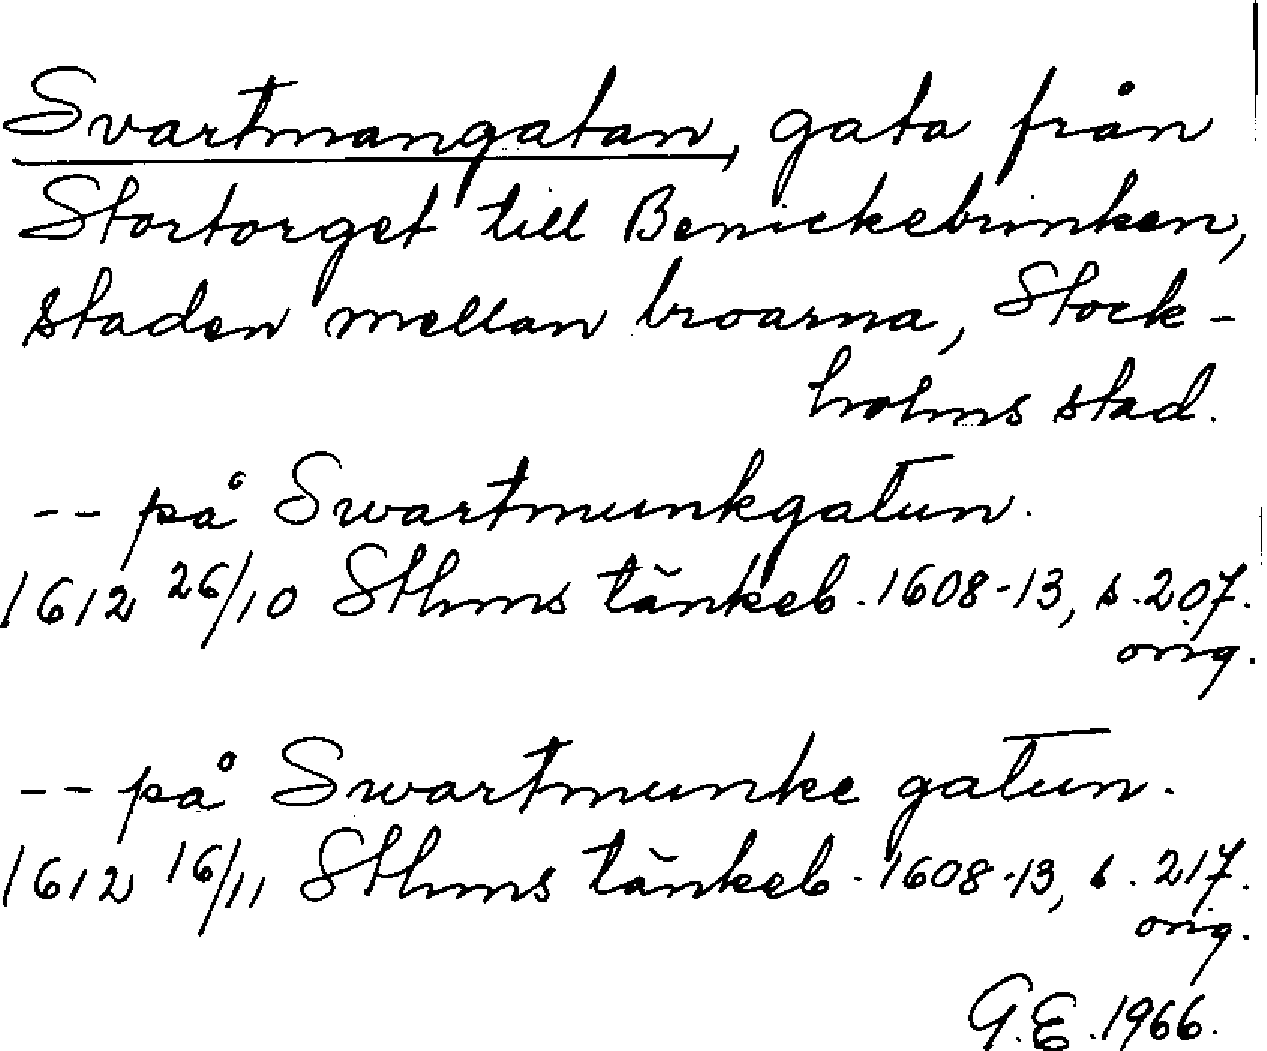 Svartmangatan, gata från
Stortorget till Benickebrinken,
staden mellan broarna, Stock-
holms stad.
-- på Swartmunkgatun.
1612 26/10 Sthms tänkeb. 1608-13, s. 207.
orig.
-- på Swartmunke gatun.
1612 16/11 Sthms tänkeb. 1608-13, s. 217.
orig.
G.E. 1966.